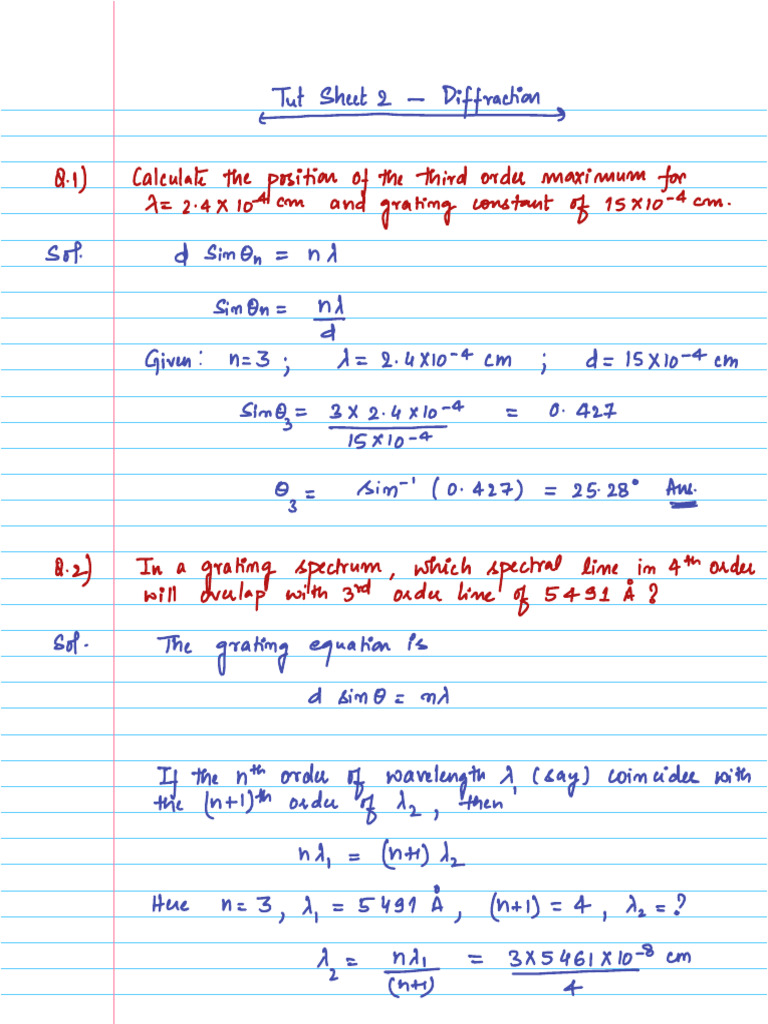 Tut Sheet 2 – Diffraction
Q.1) Calculate the position of the third order maximum for
λ = 2.4 × 10⁻⁴ cm and grating constant of 15×10⁻⁴ cm.
Sol. d Sin θₙ = nλ
Sin θₙ = nλ/d
Given: n=3 ; λ = 2.4×10⁻⁴ cm ; d = 15×10⁻⁴ cm
Sin θ₃ = 3 × 2.4 × 10⁻⁴ / 15×10⁻⁴ = 0.427
θ₃ = sin⁻¹ (0.427) = 25.28° Ans.
Q.2) In a grating spectrum, which spectral line in 4ᵗʰ order
will overlap with 3ʳᵈ order line of 5491 Å ?
Sol. The grating equation is
d sin θ = nλ
If the nᵗʰ order of wavelength λ₁ (say) coincides with
the (n+1)ᵗʰ order of λ₂, then
nλ₁ = (n+1) λ₂
Here n = 3, λ₁ = 5491 Å, (n+1) = 4, λ₂ = ?
λ₂ = nλ₁/(n+1) = 3×5461×10⁻⁸ cm / 4